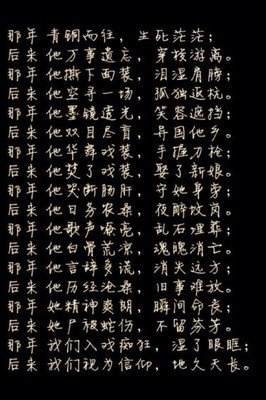 那年 青铜而往，生死茫茫；
后来 他万事遗忘，穿梭游离。
那年 他撕下面装，泪湿肩膀；
后来 他空寻一场，孤独返杭。
那年 他墨镜遗光，笑容遮挡；
后来 他双目尽盲，异国他乡。
那年 他华葬戏装，手握刀枪；
后来 他焚了戏装，娶了新娘。
那年 他哭断肠肝，守她身旁；
后来 他日务农桑，夜醉坟岗。
那年 他歌声嘹亮，乱石埋葬；
后来 他白骨荒凉，魂魄消亡。
那年 他言辞多谎，消失远方；
后来 他历经沧桑，旧事难放。
那年 她精神爽朗，瞬间命丧；
后来 她尸被蛇伤，不留芬芳。
那年 我们入戏癫狂，湿了眼眶；
后来 我们视为信仰，地久天长。